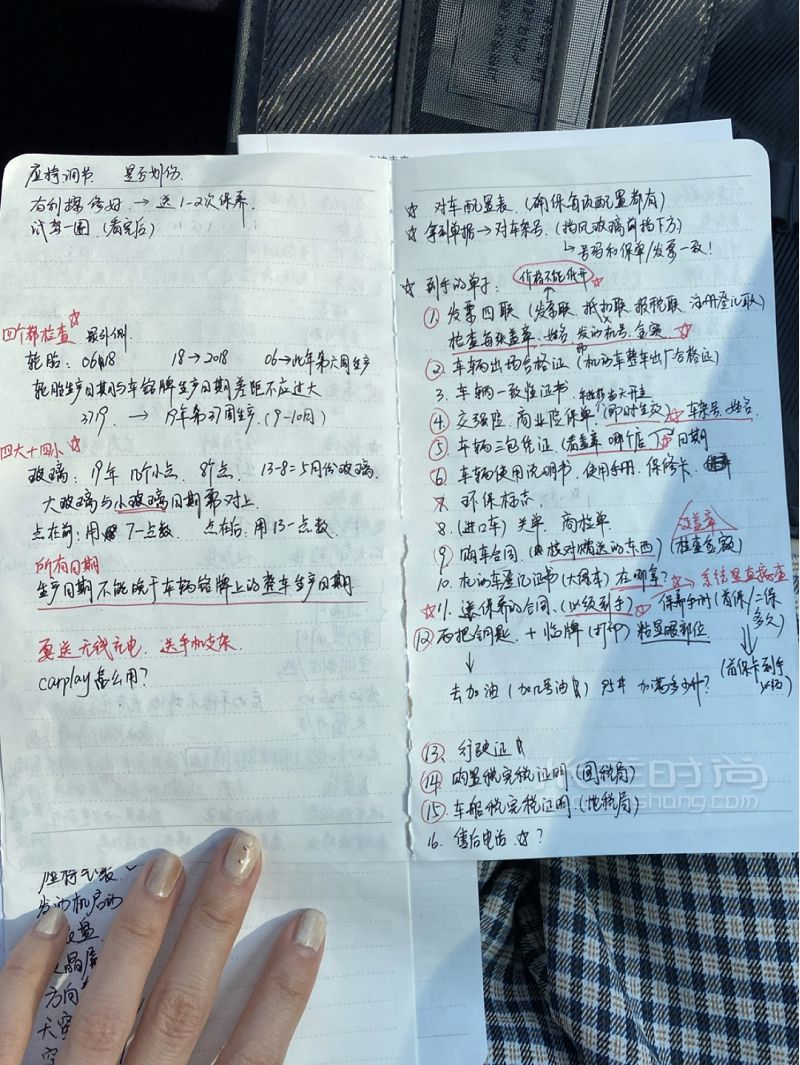 座椅调节 是否划伤
右剐擦修好 → 送1-2次保养.
试驾一圈 (看完后)
四个都检查☆ 最外侧.
轮胎: 0618 18→2018 06→此年第六周生产
轮胎生产日期与车铭牌生产日期差距不应过大
3719 → 19年第37周生产. (9-10月)
四大十四小☆
玻璃: 19年 几个小点. 8个点. 13-8=5月份玻璃.
大玻璃与小玻璃日期都对上.
点在前: 用 7-点数. 点在后: 用13-点数.
所有日期
生产日期不能晚于车辆铭牌上的整车生产日期
要送无线充电, 送手机支架.
carplay怎么用?
座椅
发动机启动
盘.
晶屏
方向
天窗
☆ 对车配置表. (确保每项配置都有)
☆ 拿到单据→对车架号. (挡风玻璃前挡下方)
↳号码和保单/发票一致!
☆ 到手的单子: 价格不能低开☆
① 发票四联 (发票联 抵扣联 报税联 注册登记联)
检查每张盖章. 姓名 发动机号. 金额 ☆
② 车辆出场合格证 (机动车整车出厂合格证)
3. 车辆一致性证书.
④ 交强险. 商业险保单. (即时生效)☆ 车架号. 姓名.
⑤ 车辆三包凭证. (看盖章 哪个店)☆日期
⑥ 车辆使用说明书. 使用手册. 保修卡.
7. 环保标志
8. (进口车) 关单. 商检单.
⑨ 购车合同. (核对赠送的东西) (检查金额) 盖章
10. 机动车登记证书 (大绿本) 在哪拿?☆→ 系统里查
☆ 11. 送保养的合同. (必须到手)☆ 保养手册 (首保/二保 多久)
(首保卡到手)
⑫ 两把钥匙. + 临牌 (打印) 粘显眼部位
↓
去加油 (加几号油) 95# 加满多少升?
⑬. 行驶证
⑭ 购置税完税证明. (国税局)
⑮ 车船税完税证明. (地税局)
16. 售后电话. ☆?